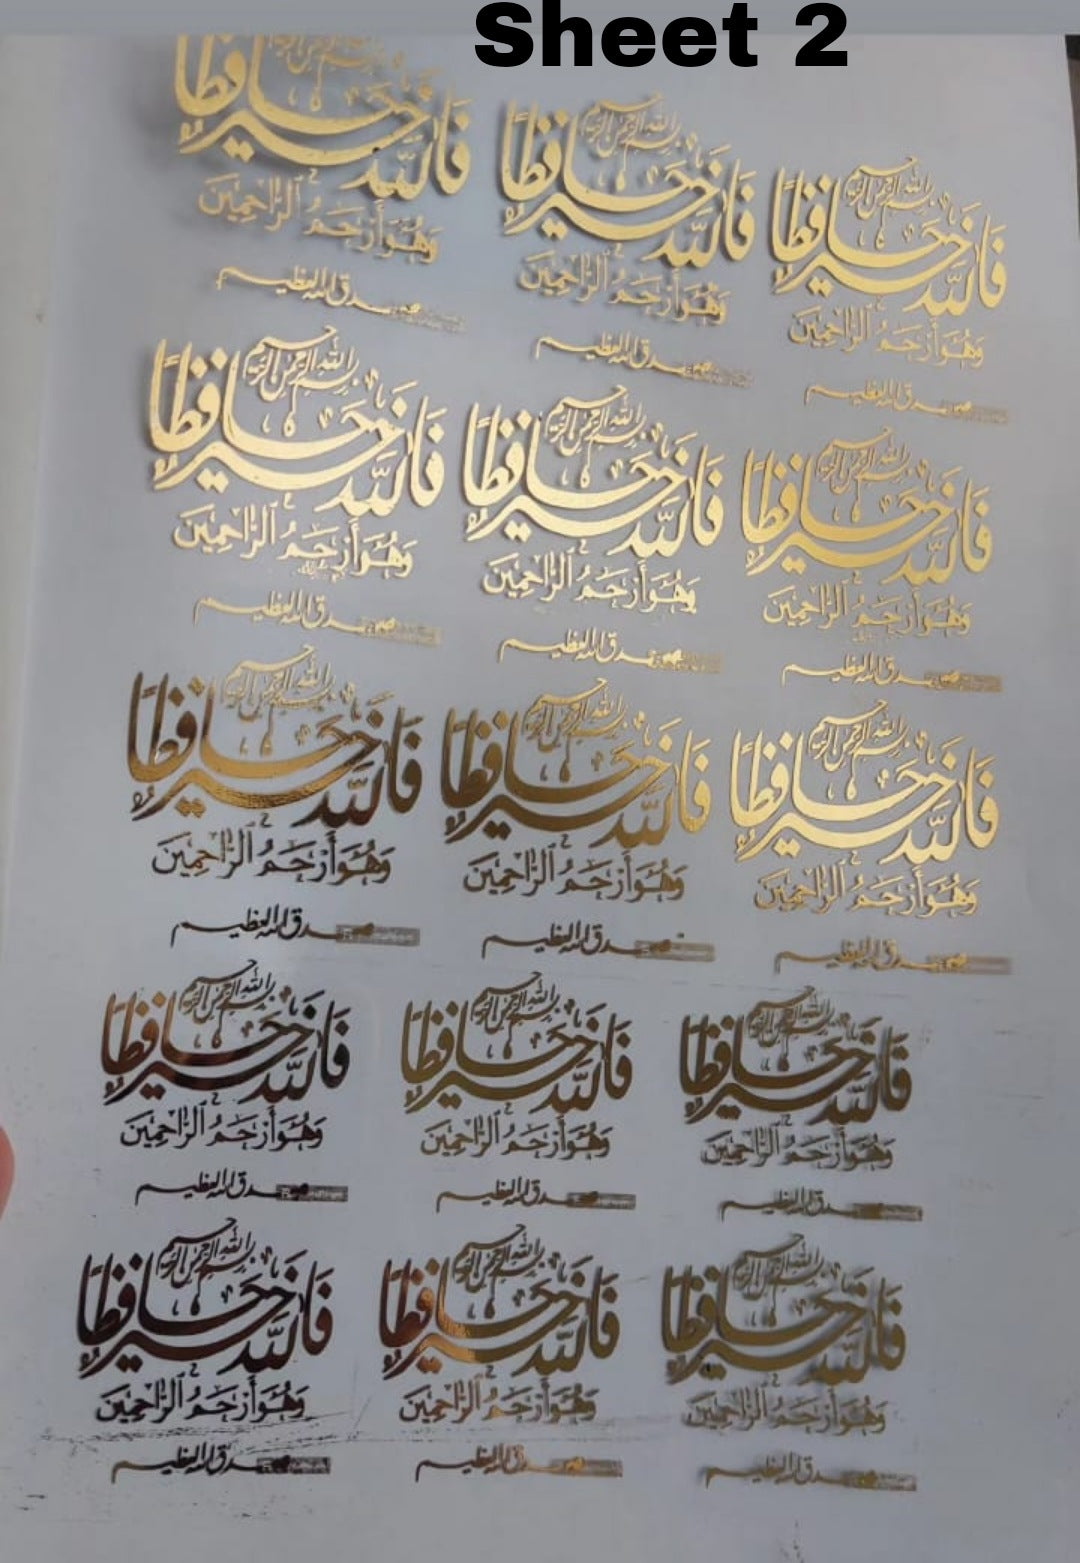 Sheet 2
بسم الله الرحمن الرحيم
فَاللَّهُ خَيْرٌ حَافِظًا
وَهُوَ أَرْحَمُ الرَّاحِمِينَ
صدق الله العظيم
بسم الله الرحمن الرحيم
فَاللَّهُ خَيْرٌ حَافِظًا
وَهُوَ أَرْحَمُ الرَّاحِمِينَ
صدق الله العظيم
بسم الله الرحمن الرحيم
فَاللَّهُ خَيْرٌ حَافِظًا
وَهُوَ أَرْحَمُ الرَّاحِمِينَ
صدق الله العظيم
بسم الله الرحمن الرحيم
فَاللَّهُ خَيْرٌ حَافِظًا
وَهُوَ أَرْحَمُ الرَّاحِمِينَ
صدق الله العظيم
بسم الله الرحمن الرحيم
فَاللَّهُ خَيْرٌ حَافِظًا
وَهُوَ أَرْحَمُ الرَّاحِمِينَ
صدق الله العظيم
بسم الله الرحمن الرحيم
فَاللَّهُ خَيْرٌ حَافِظًا
وَهُوَ أَرْحَمُ الرَّاحِمِينَ
صدق الله العظيم
بسم الله الرحمن الرحيم
فَاللَّهُ خَيْرٌ حَافِظًا
وَهُوَ أَرْحَمُ الرَّاحِمِينَ
صدق الله العظيم
بسم الله الرحمن الرحيم
فَاللَّهُ خَيْرٌ حَافِظًا
وَهُوَ أَرْحَمُ الرَّاحِمِينَ
صدق الله العظيم
بسم الله الرحمن الرحيم
فَاللَّهُ خَيْرٌ حَافِظًا
وَهُوَ أَرْحَمُ الرَّاحِمِينَ
صدق الله العظيم
بسم الله الرحمن الرحيم
فَاللَّهُ خَيْرٌ حَافِظًا
وَهُوَ أَرْحَمُ الرَّاحِمِينَ
صدق الله العظيم
بسم الله الرحمن الرحيم
فَاللَّهُ خَيْرٌ حَافِظًا
وَهُوَ أَرْحَمُ الرَّاحِمِينَ
صدق الله العظيم
بسم الله الرحمن الرحيم
فَاللَّهُ خَيْرٌ حَافِظًا
وَهُوَ أَرْحَمُ الرَّاحِمِينَ
صدق الله العظيم
بسم الله الرحمن الرحيم
فَاللَّهُ خَيْرٌ حَافِظًا
وَهُوَ أَرْحَمُ الرَّاحِمِينَ
صدق الله العظيم
بسم الله الرحمن الرحيم
فَاللَّهُ خَيْرٌ حَافِظًا
وَهُوَ أَرْحَمُ الرَّاحِمِينَ
صدق الله العظيم
بسم الله الرحمن الرحيم
فَاللَّهُ خَيْرٌ حَافِظًا
وَهُوَ أَرْحَمُ الرَّاحِمِينَ
صدق الله العظيم